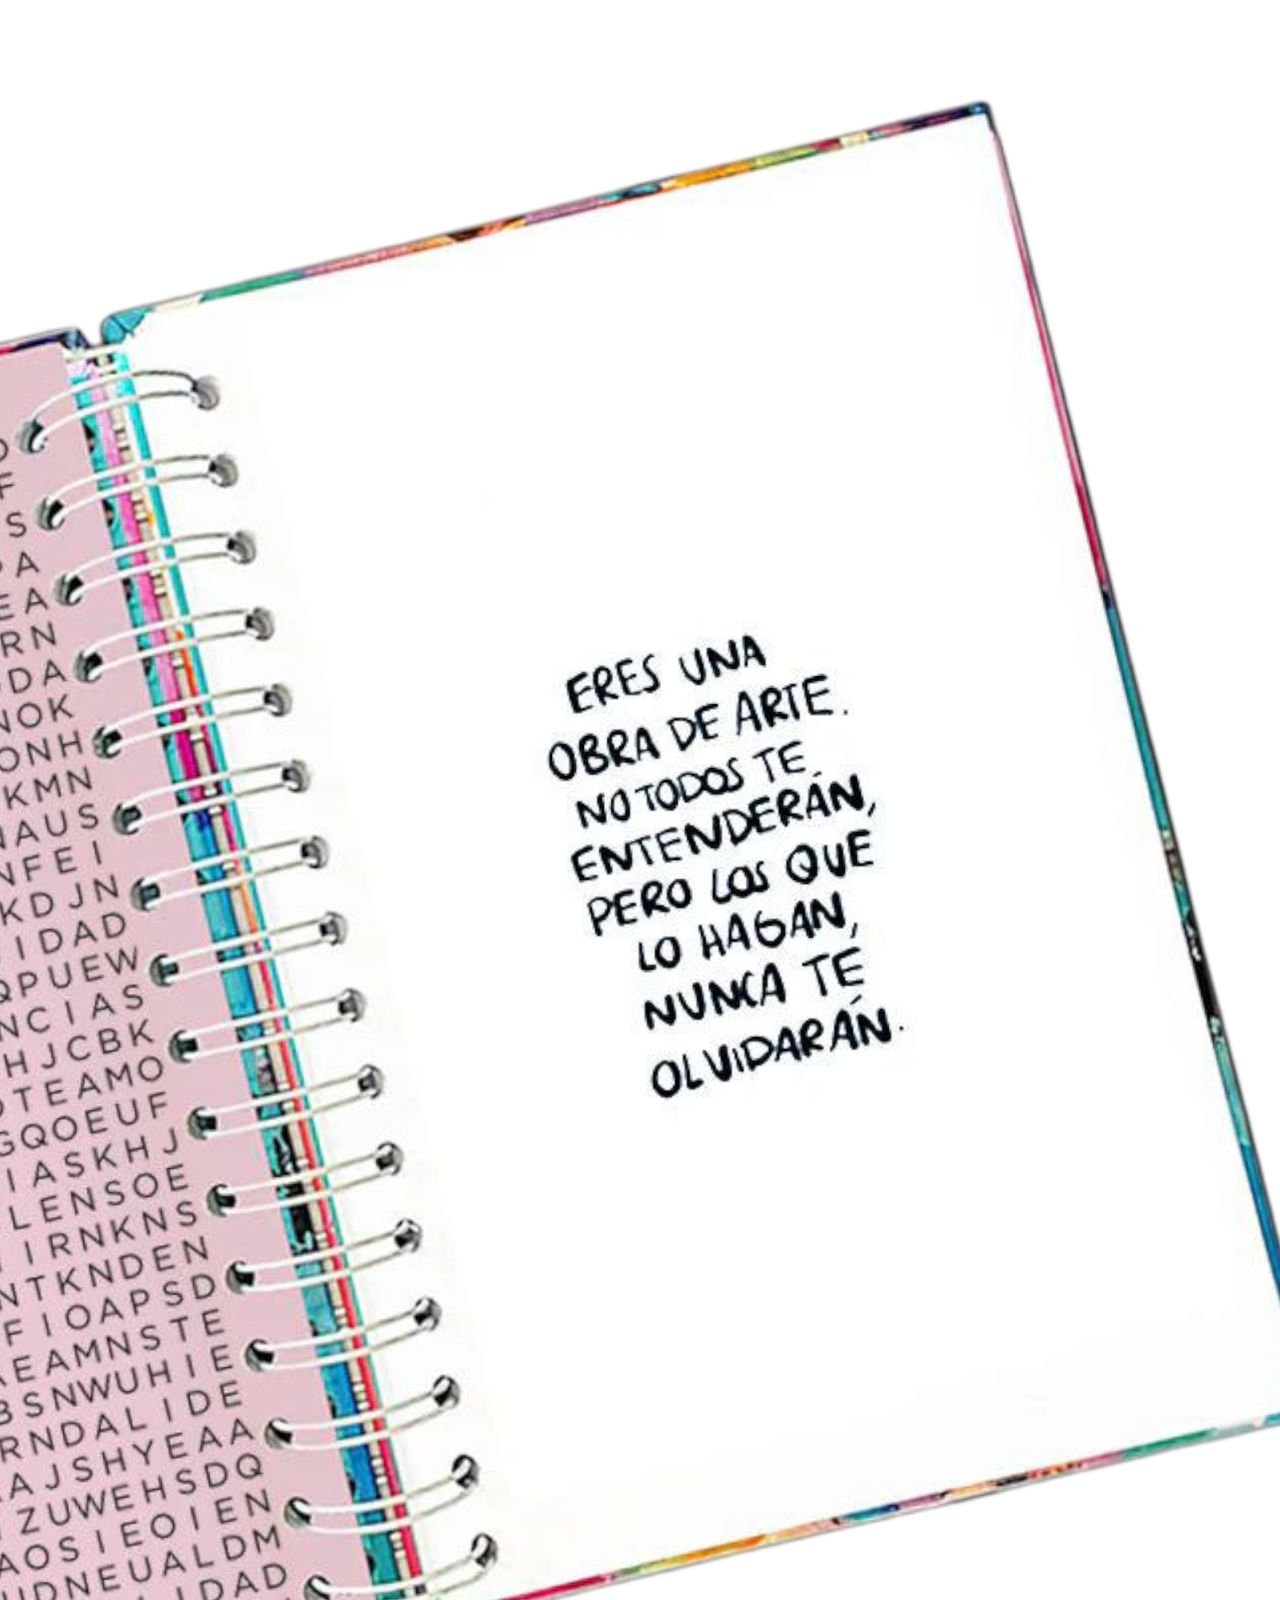 F
S
A
EA
RN
DA
NOK
ONH
KMN
NAUS
NFEI
KDJN
IDAD
QPUEW
NCIAS
HJCBK
OTEAMO
GQOEUF
IASKHJ
LENSOE
IRNKNS
NTKNDEN
FIOAPSD
EAMNSTE
BSNWUHIE
RNDALIDE
AJSHYEAA
ZUWEHSDQ
AOSIEOIEN
UDNEUALDM
IDAD
ERES UNA
OBRA DE ARTE.
NO TODOS TE
ENTENDERÁN,
PERO LOS QUE
LO HAGAN,
NUNCA TE
OLVIDARÁN.